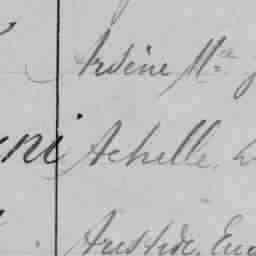 Arsène Mie
ni Achille
Aristide, Eug